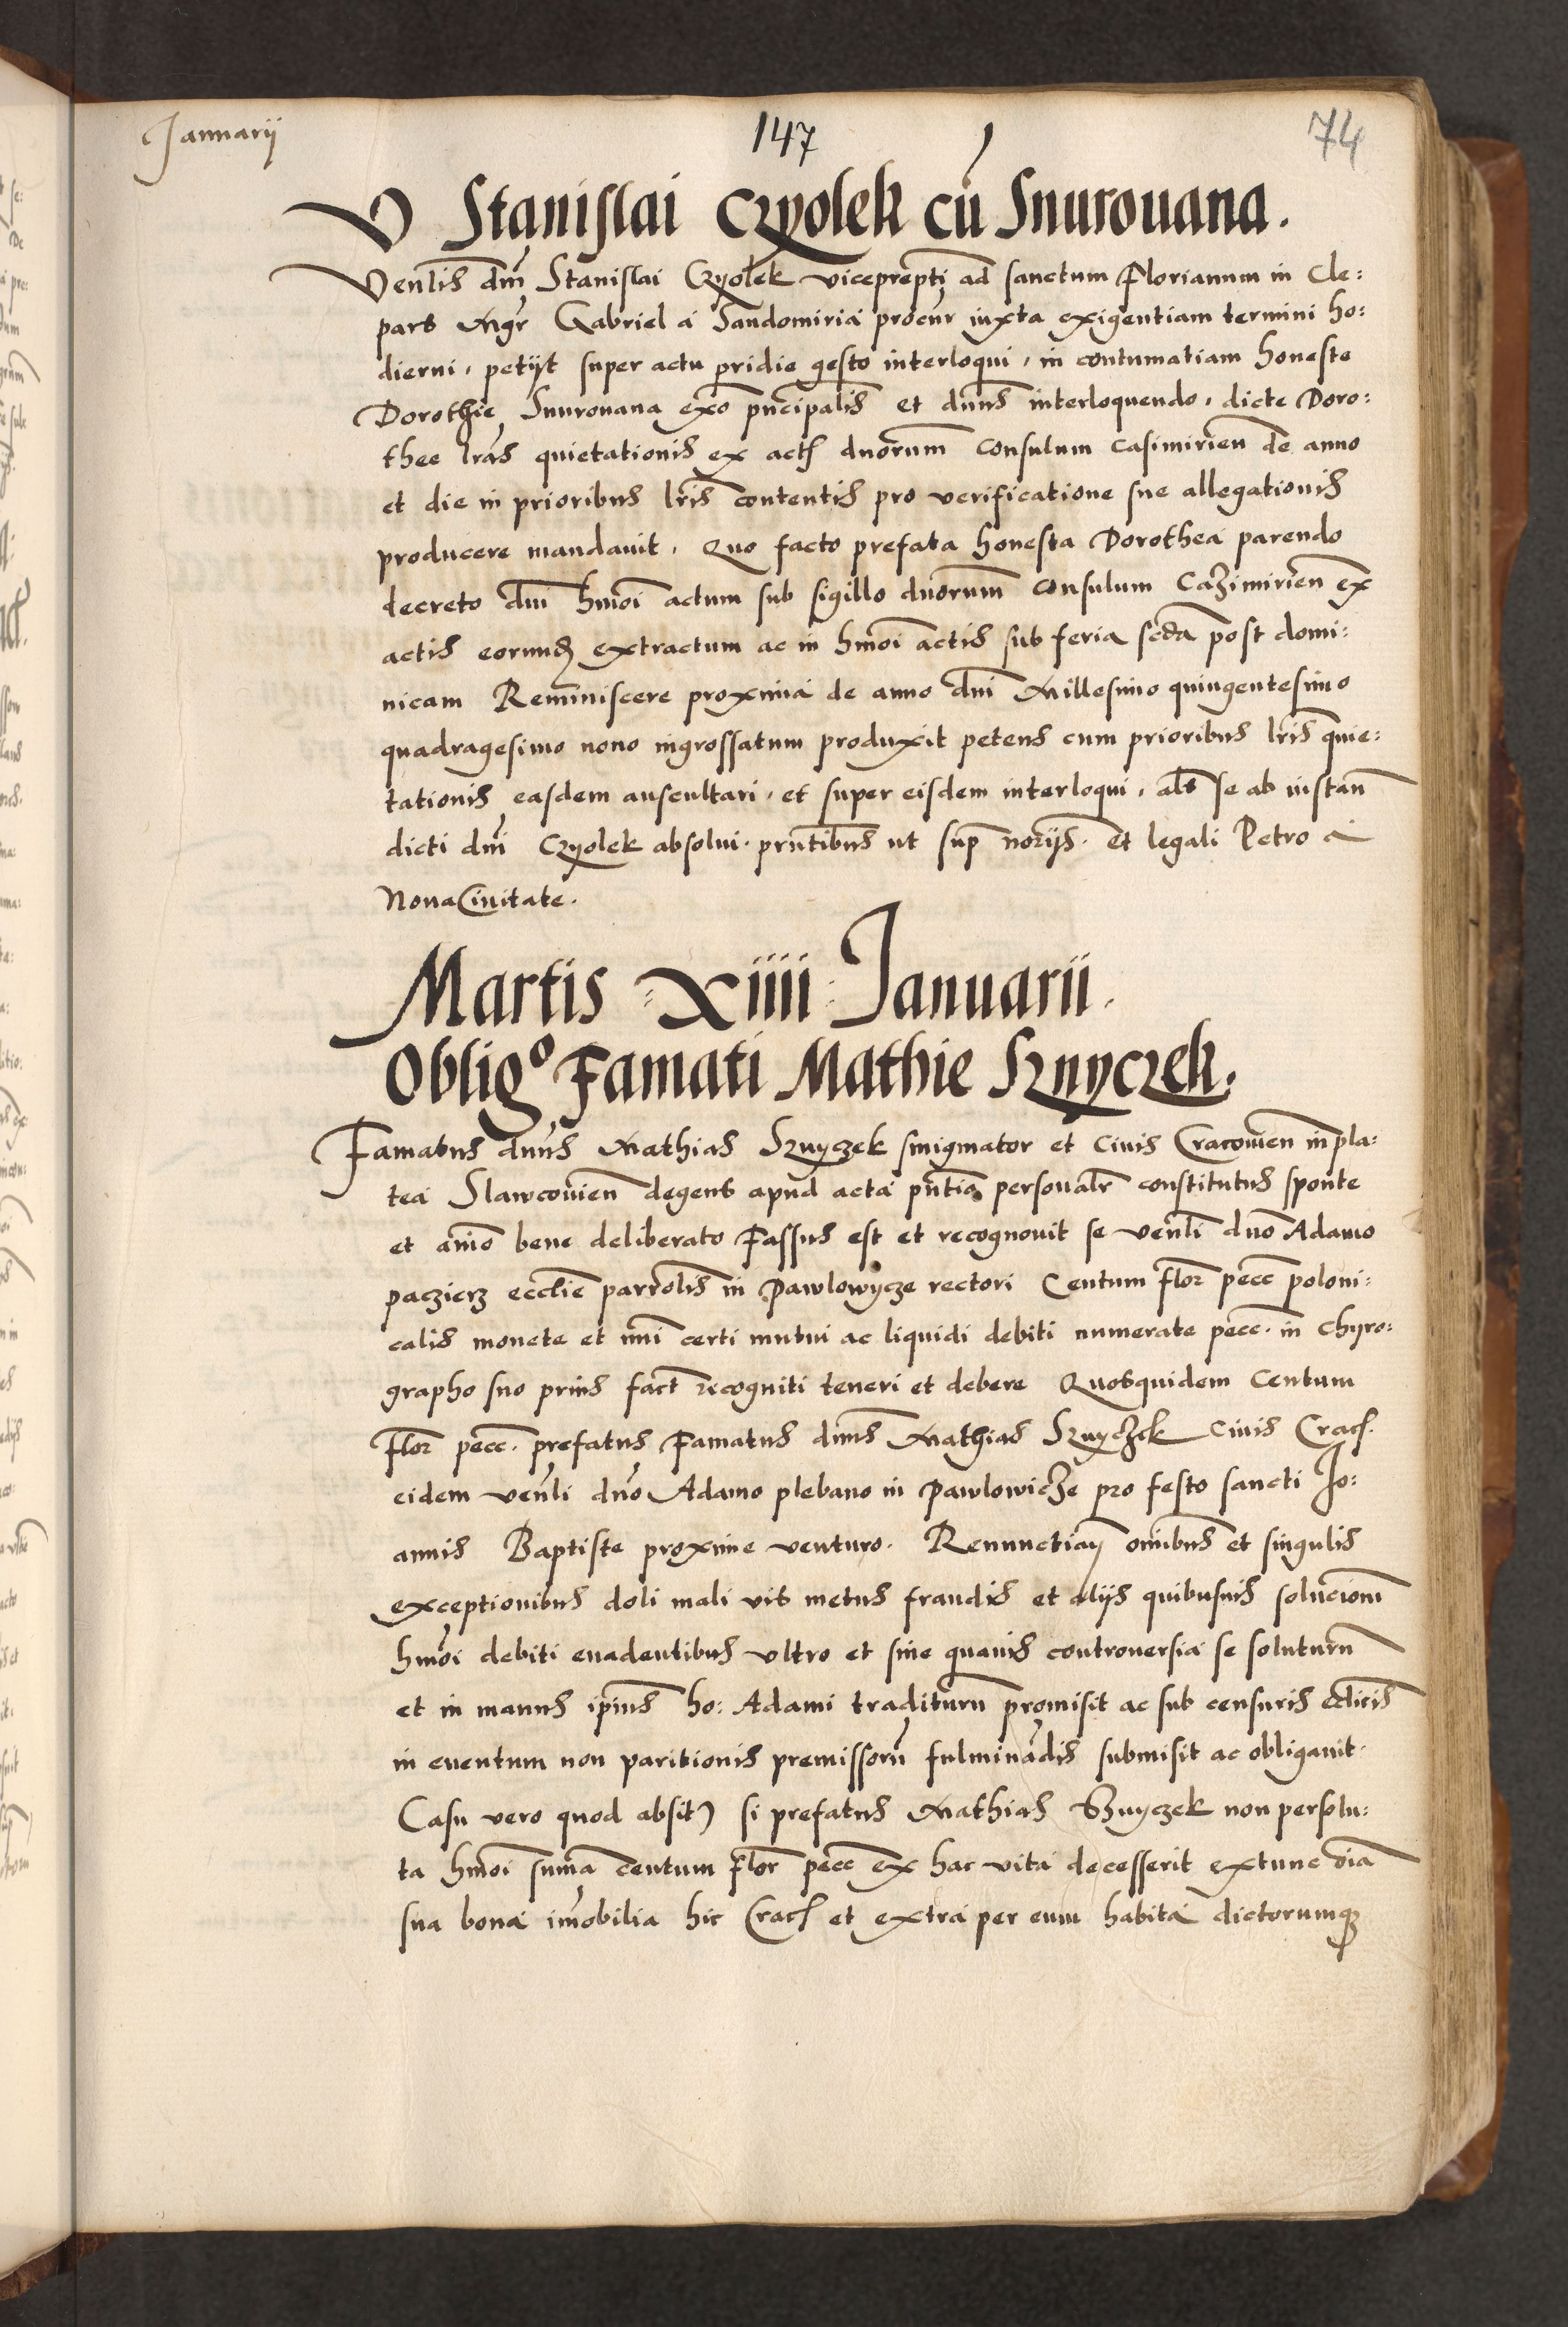 Januarij
147
74
V Stanislai Czyolek cū Snurouana.
Venlis dm̄ Stanislai Czyolek viceprepti ad sanctum Florianum in Cle:
pars Mgr Gabriel á Sandomiriá procur̄ iuxta exigentiam termini ho:
dierni, petijt super actu pridie gesto interloqui, in contumatiam honeste
Dorothie Snurouana exō pn̄cipalis et dnūs interloquendo, dicte Doro:
thee lrās quietationis ex act dnorum Consulum Casimirien̄ de anno
et die in prioribus lrīs contentis pro verificatione sue allegationis
producere mandauit. Quo facto prefata honesta Dorotheá parendo
decreto dnī hmōi actum sub sigillo dnorum Consulum Cazimirien̄ ex
actis eorund extractum ac in hmōi actis sub feria scd̄a post domi:
nicam Reminiscere proximá de anno dnī Millesimo quingentesimo
quadragesimo nono ingrossatum produxit petens cum prioribus lrīs quie:
tationis easdem auscultari, et super eisdem interloqui, als se ab instan̄
dicti dnī Czyolek absolui. prntibus ut sup̄ norijs. et legali Petro á
Noua Ciuitate.
Martis XIIII Januarii.
Obligº Famati Mathie Sznyczek.
Famatus dnūs Mathias Sznyczek smigmator et Ciuis Cracouien̄ in pla:
teá Slawcouien̄ degens apud actá pn̄tia personalr̄ constitutus sponte
et anīo bene deliberato Fassus est et recognouit se venlī dnō Adamo
paczierz eccliē parrolis in Pawlowycze rectori Centum flor̄ pecc̄ poloni:
calis monete et nnī certi mutui ac liquidi debiti numerate pecc̄. in Chyro:
grapho suo prius fact recogniti teneri et debere Quosquidem Centum
flor̄ pecc̄. prefatus Famatus dnus Mathias Sznyczek Ciuis Crac.
eidem venlī dnō Adamo plebano in Pawlowicze pro festo sancti Jo:
annis Baptiste proxime venturo. Renunctian̄ omībus et singulis
exceptionibus doli mali vis metus fraudis et alijs quibusuis solucionī
hmōi debiti euadentibus vltro et sine quauis controuersiá se soluturū
et in manus ipīus ho: Adami traditurū promisit ac sub censuris ecclicis
in euentum non paritionis premissorū fulminādis submisit ac obligauit.
Casu vero quod absit) si prefatus Mathias Sznyczek non persolu:
ta hmōi sumā centum flor̄ pecc̄ ex hac vitá decesserit extunc oīa
sua boná imobilia hic Crac et extrá per eum habitá dictorumq